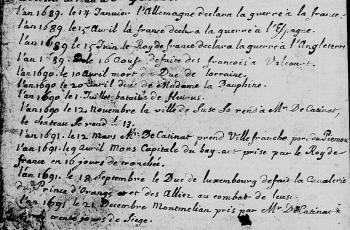 l'an 1689. le 17 Janvier l'Allemagne declara la guerre à la france.
l'an 1689 le 15 avril la france declara la guerre a l'Espagne.
l'an 1689 le 15 Juin le Roy de france declara la guerre a l'Angleterre
l'an 1689. le 16 Aout defaite des francois a Valcourt.
l'an 1690. le 10 avril mort du Duc de lorraine.
l'an 1690. le 20 avril de Madame la Dauphine.
l'an 1690. le 1. Juillet bataille de fleurus.
l'an 1690. le 12 Novembre la ville de Suse se rend à Mr. De Catinat,
le chateau se rend le 13.
l'an 1691. le 12 Mars Mr. De Catinat prend Ville franche par du Piemon
l'an 1691. le 9 avril Mons Capitale du hay- aut prise par le Roy de
france en 16 jours de tranchée.
l'an 1691. le 18 Septembre le Duc de luxembourg defait la Cavalerie
du Prince d'Orange et des Alliez au combat de leuse
l'an 1691 le 21 Decembre Montmelian pris par Mr De Catinat
jours de Siege.